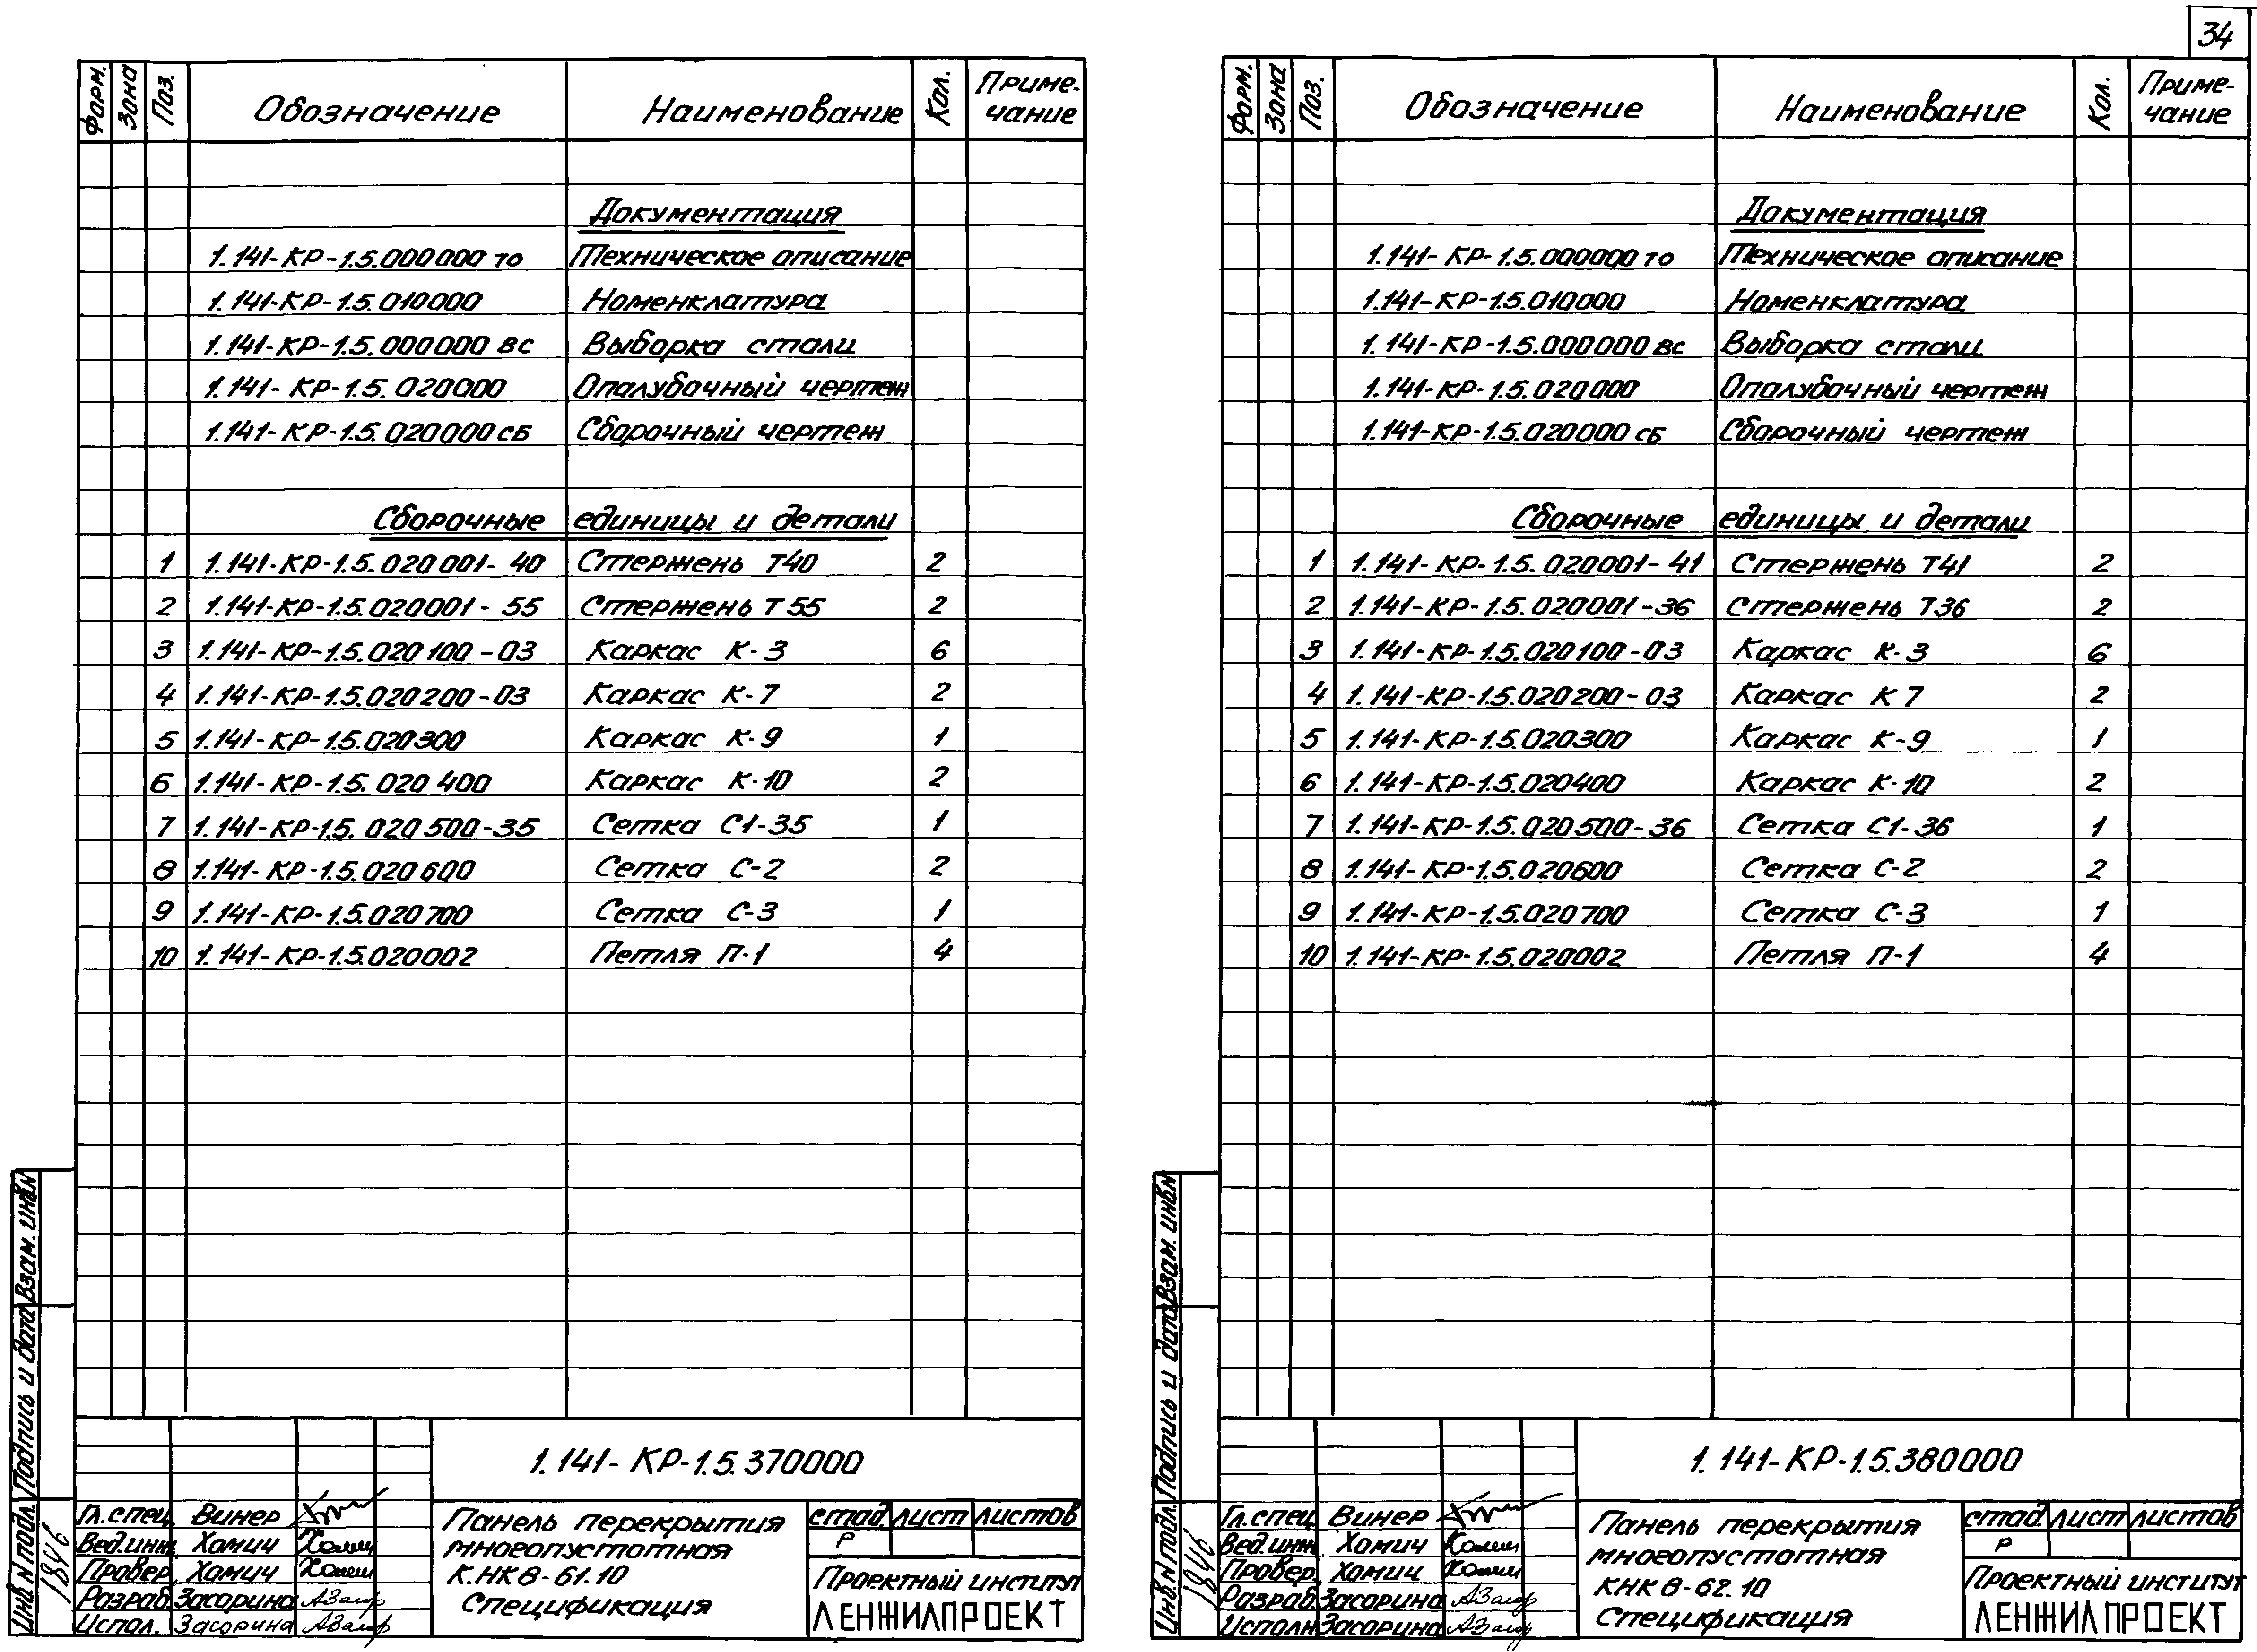 34
Форм. Зона Поз. Обозначение Наименование Кол. Приме-
чание
Документация
1.141-КР-1.5.000000 ТО Техническое описание
1.141-КР-1.5.010000 Номенклатура
1.141-КР-1.5.000000 ВС Выборка стали
1.141-КР-1.5.020000 Опалубочный чертеж
1.141-КР-1.5.020000 СБ Сборочный чертеж
Сборочные единицы и детали
1 1.141-КР-1.5.020001-40 Стержень Т40 2
2 1.141-КР-1.5.020001-55 Стержень Т55 2
3 1.141-КР-1.5.020100-03 Каркас К-3 6
4 1.141-КР-1.5.020200-03 Каркас К-7 2
5 1.141-КР-1.5.020300 Каркас К-9 1
6 1.141-КР-1.5.020400 Каркас К-10 2
7 1.141-КР-1.5.020500-35 Сетка С1-35 1
8 1.141-КР-1.5.020600 Сетка С-2 2
9 1.141-КР-1.5.020700 Сетка С-3 1
10 1.141-КР-1.5.020002 Петля П-1 4
Инв. N подл. Подпись и дата Взам. инв. N
1846
1.141-КР-1.5.370000
Гл.спец. Винер
Вед.инж. Хомич
Провер. Хомич
Разраб. Засорина
Испол. Засорина
Панель перекрытия
многопустотная
К.НК8-61.10
Спецификация
стад. лист листов
Р
Проектный институт
ЛЕНЖИЛПРОЕКТ
Форм. Зона Поз. Обозначение Наименование Кол. Приме-
чание
Документация
1.141-КР-1.5.000000 ТО Техническое описание
1.141-КР-1.5.010000 Номенклатура
1.141-КР-1.5.000000 ВС Выборка стали
1.141-КР-1.5.020000 Опалубочный чертеж
1.141-КР-1.5.020000 СБ Сборочный чертеж
Сборочные единицы и детали
1 1.141-КР-1.5.020001-41 Стержень Т41 2
2 1.141-КР-1.5.020001-36 Стержень Т36 2
3 1.141-КР-1.5.020100-03 Каркас К-3 6
4 1.141-КР-1.5.020200-03 Каркас К 7 2
5 1.141-КР-1.5.020300 Каркас К-9 1
6 1.141-КР-1.5.020400 Каркас К-10 2
7 1.141-КР-1.5.020500-36 Сетка С1-36 1
8 1.141-КР-1.5.020600 Сетка С-2 2
9 1.141-КР-1.5.020700 Сетка С-3 1
10 1.141-КР-1.5.020002 Петля П-1 4
Инв. N подл. Подпись и дата Взам. инв. N
1846
1.141-КР-1.5.380000
Гл.спец. Винер
Вед.инж. Хомич
Провер. Хомич
Разраб. Засорина
Исполн. Засорина
Панель перекрытия
многопустотная
КНК8-62.10
Спецификация
стад. лист листов
Р
Проектный институт
ЛЕНЖИЛПРОЕКТ